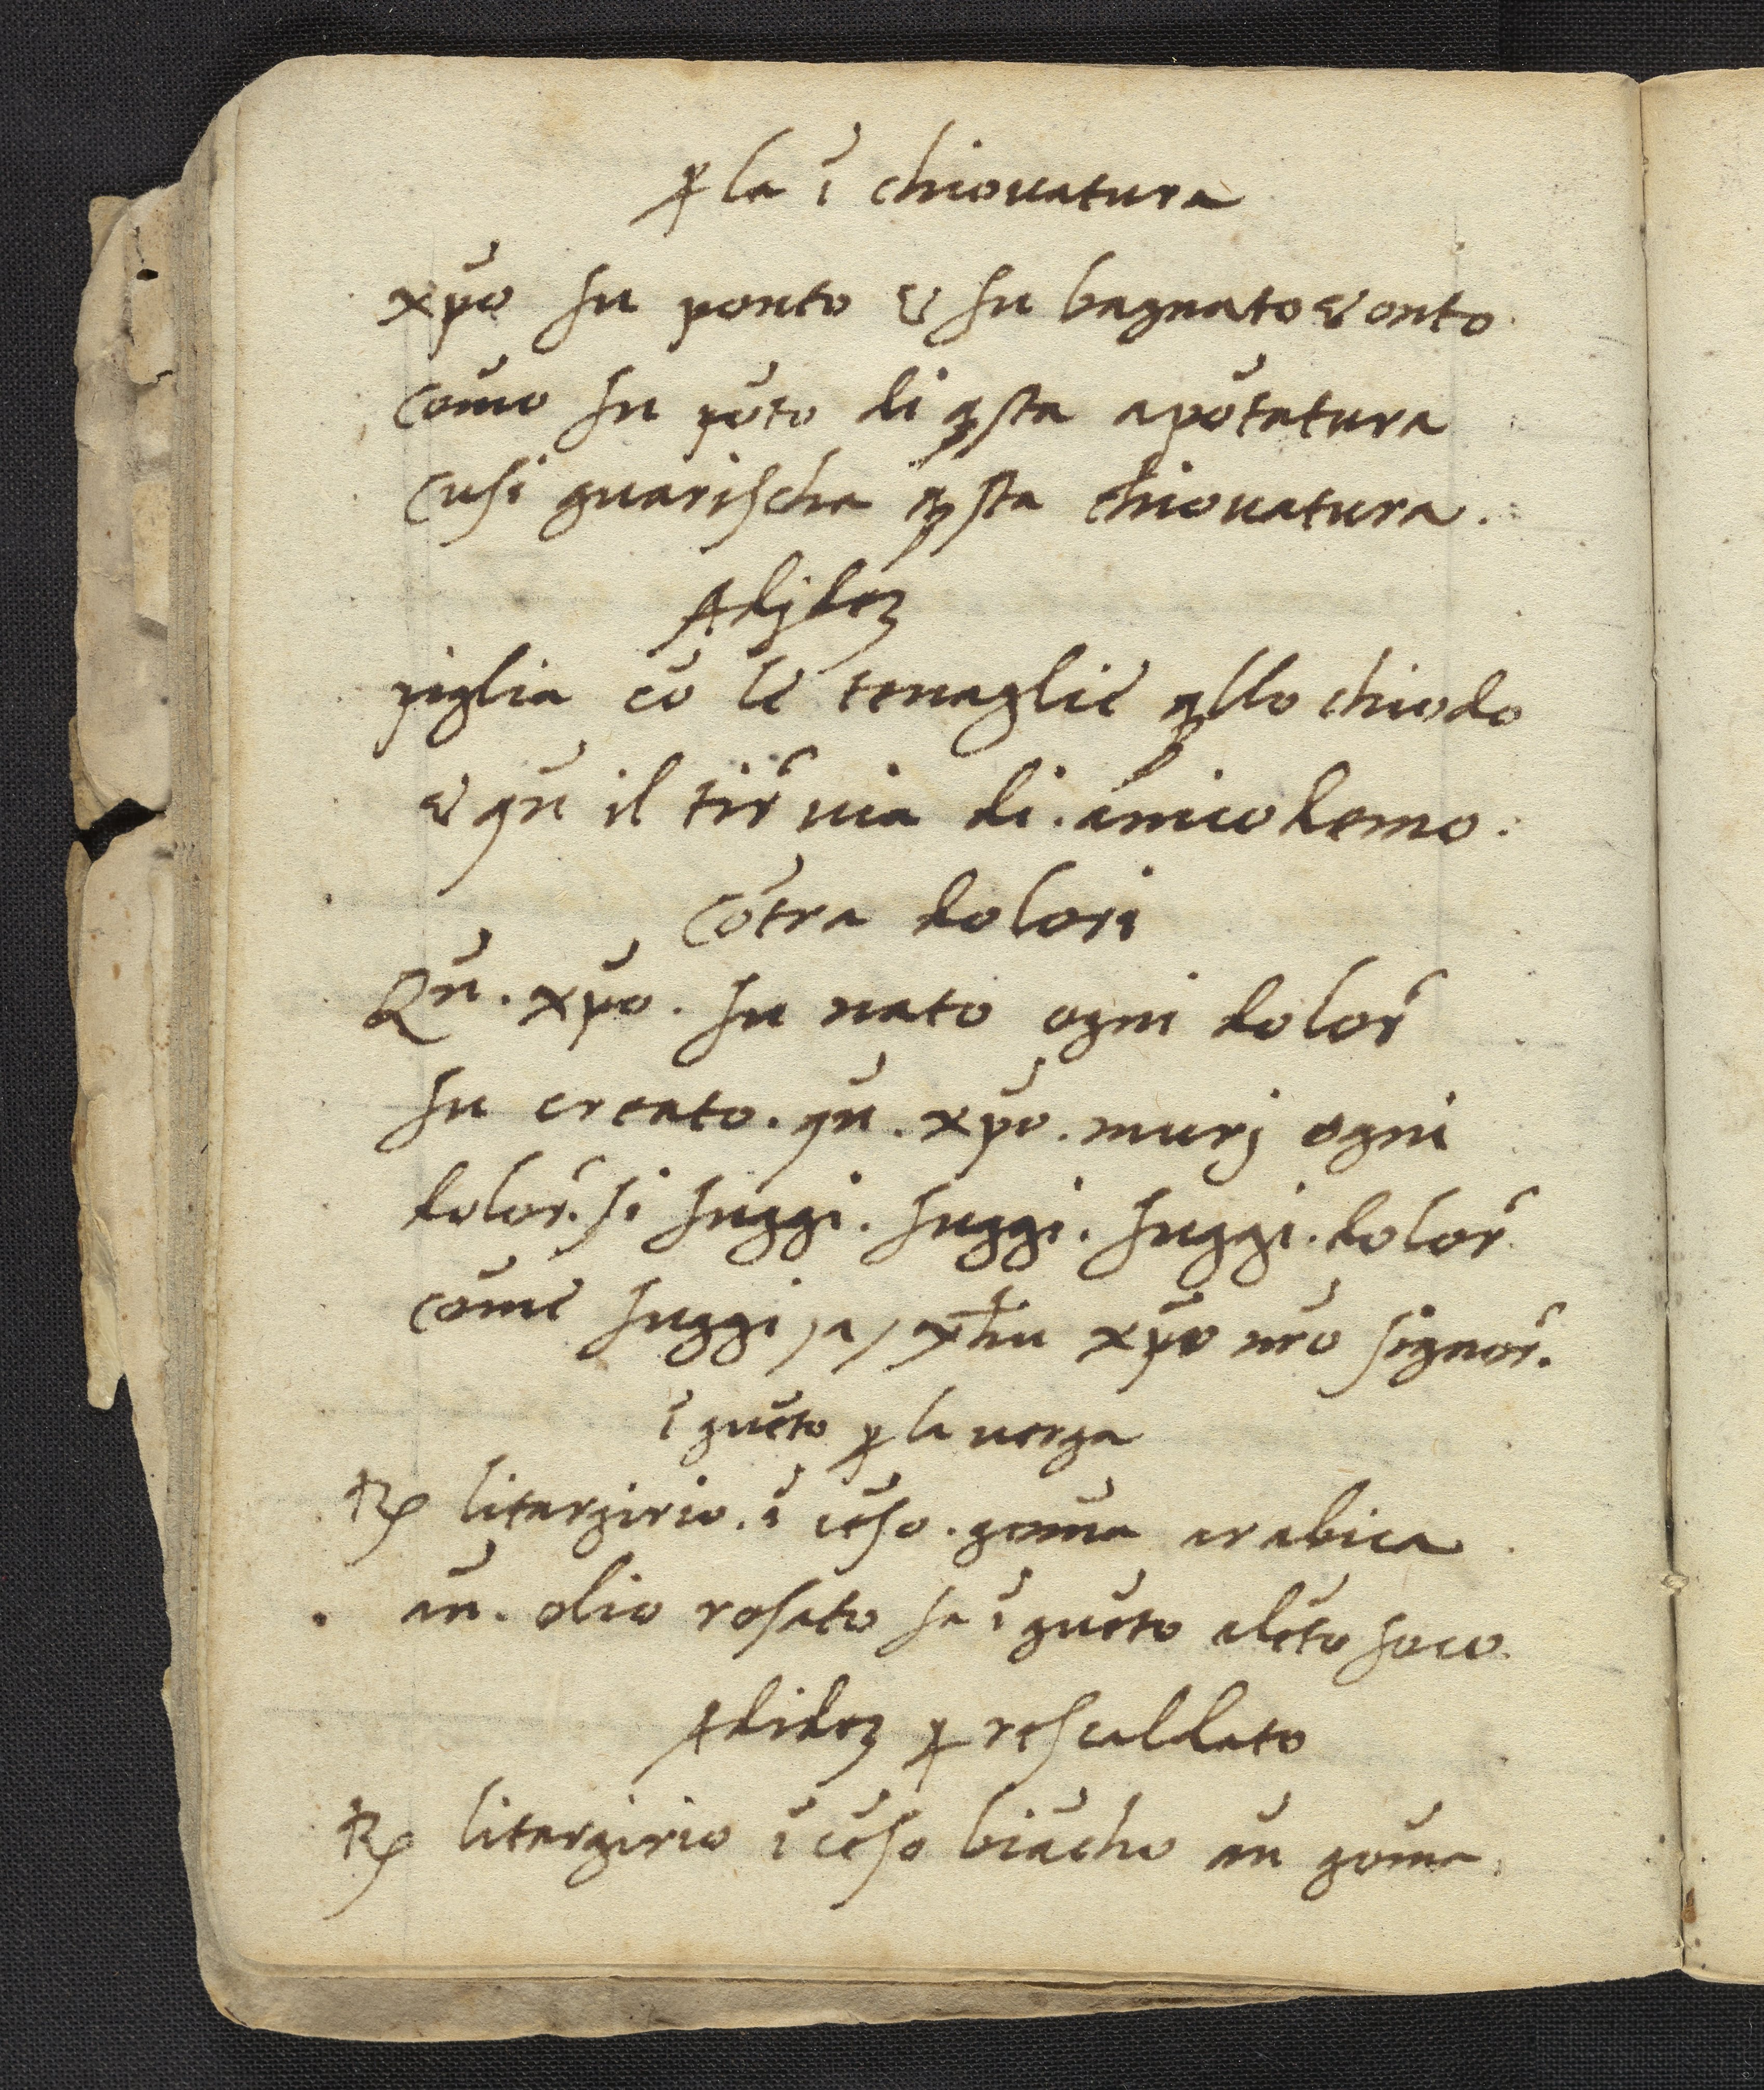 ꝑ la ī chiouatura
xp̄o fu ponto & fu bagnato & onto
com̄o fu pōto di q̄sta apōtatura
cusi guarischa q̄sta chiouatura.
Adjdez
piglia cō le tenaglie q̄llo chiodo
& qn̄ il tir̄ uia di. anicodemo.
Cōtra dolori
Qn̄. xp̄o. fu nato ogni dolor̄
fu creato. qn̄. xp̄o. murj ogni
dolor̄. si fuggi. fuggi. fuggi. dolor̄
com̄e fuggi /a/ yħu xp̄o nr̄o signor̄.
ī guēto ꝑ la uerga
℞ litargirio. ī cēso. gom̄a arabica
an̄. olio rosato fa ī guēto alēto foco.
Adidez ꝑ rescaldato
℞ litargirio ī cēso biācho an̄ gom̄a